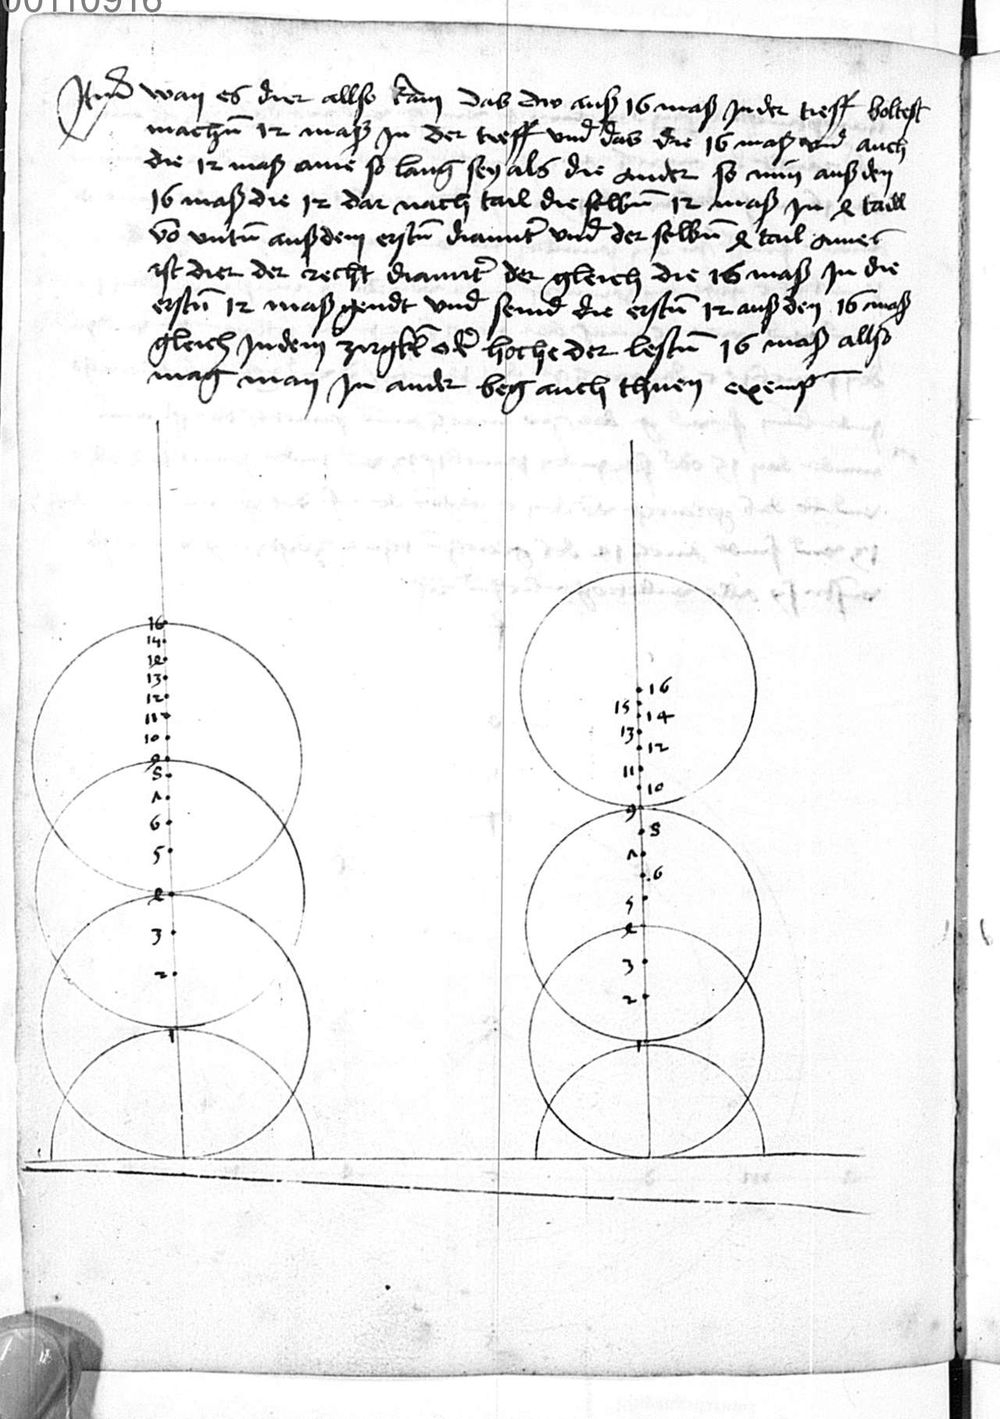 00110916
Item wan es dier allso kam das dw auß 16 maß in der tieff woltest
machn̄ 12 maß in der tieff vnd das die 16 maß vnd auch
die 12 maß aine so lang sey als die ander so nim auß den
16 maß die 12 dar nach tail die selbn̄ 12 maß in 4 taill
vō vntn̄ auß dem erstn̄ diamit̄ vnd der selbn̄ 4 tail aines
ist dier der recht diamit̄ der gleich die 16 maß in die
erstn̄ 12 maß gendt vnd seind die erstn̄ 12 auß den 16 maß
gleich in dem zirgkl̄ od̄ hoche der lestn̄ 16 maß allso
mag man in ander weg auch thuen exemp̄
16
14
14
13
12
11
10
9
8
7
6
5
4
3
2
1
16
15
14
13
12
11
10
9
8
7
6
5
4
3
2
1